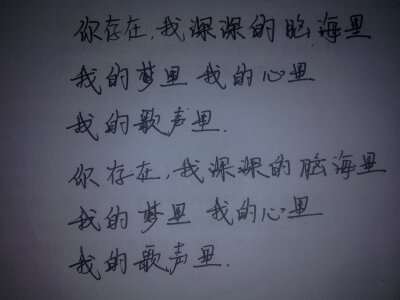 你存在,我深深的脑海里
我的梦里 我的心里
我的歌声里.
你存在,我深深的脑海里
我的梦里 我的心里
我的歌声里.